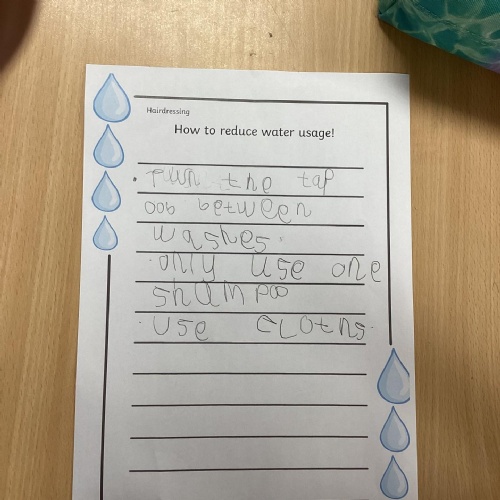 Hairdressing
How to reduce water usage!
• Turn the tap
oob between
washes.
· only use one
shumpoo
· use cLOths.